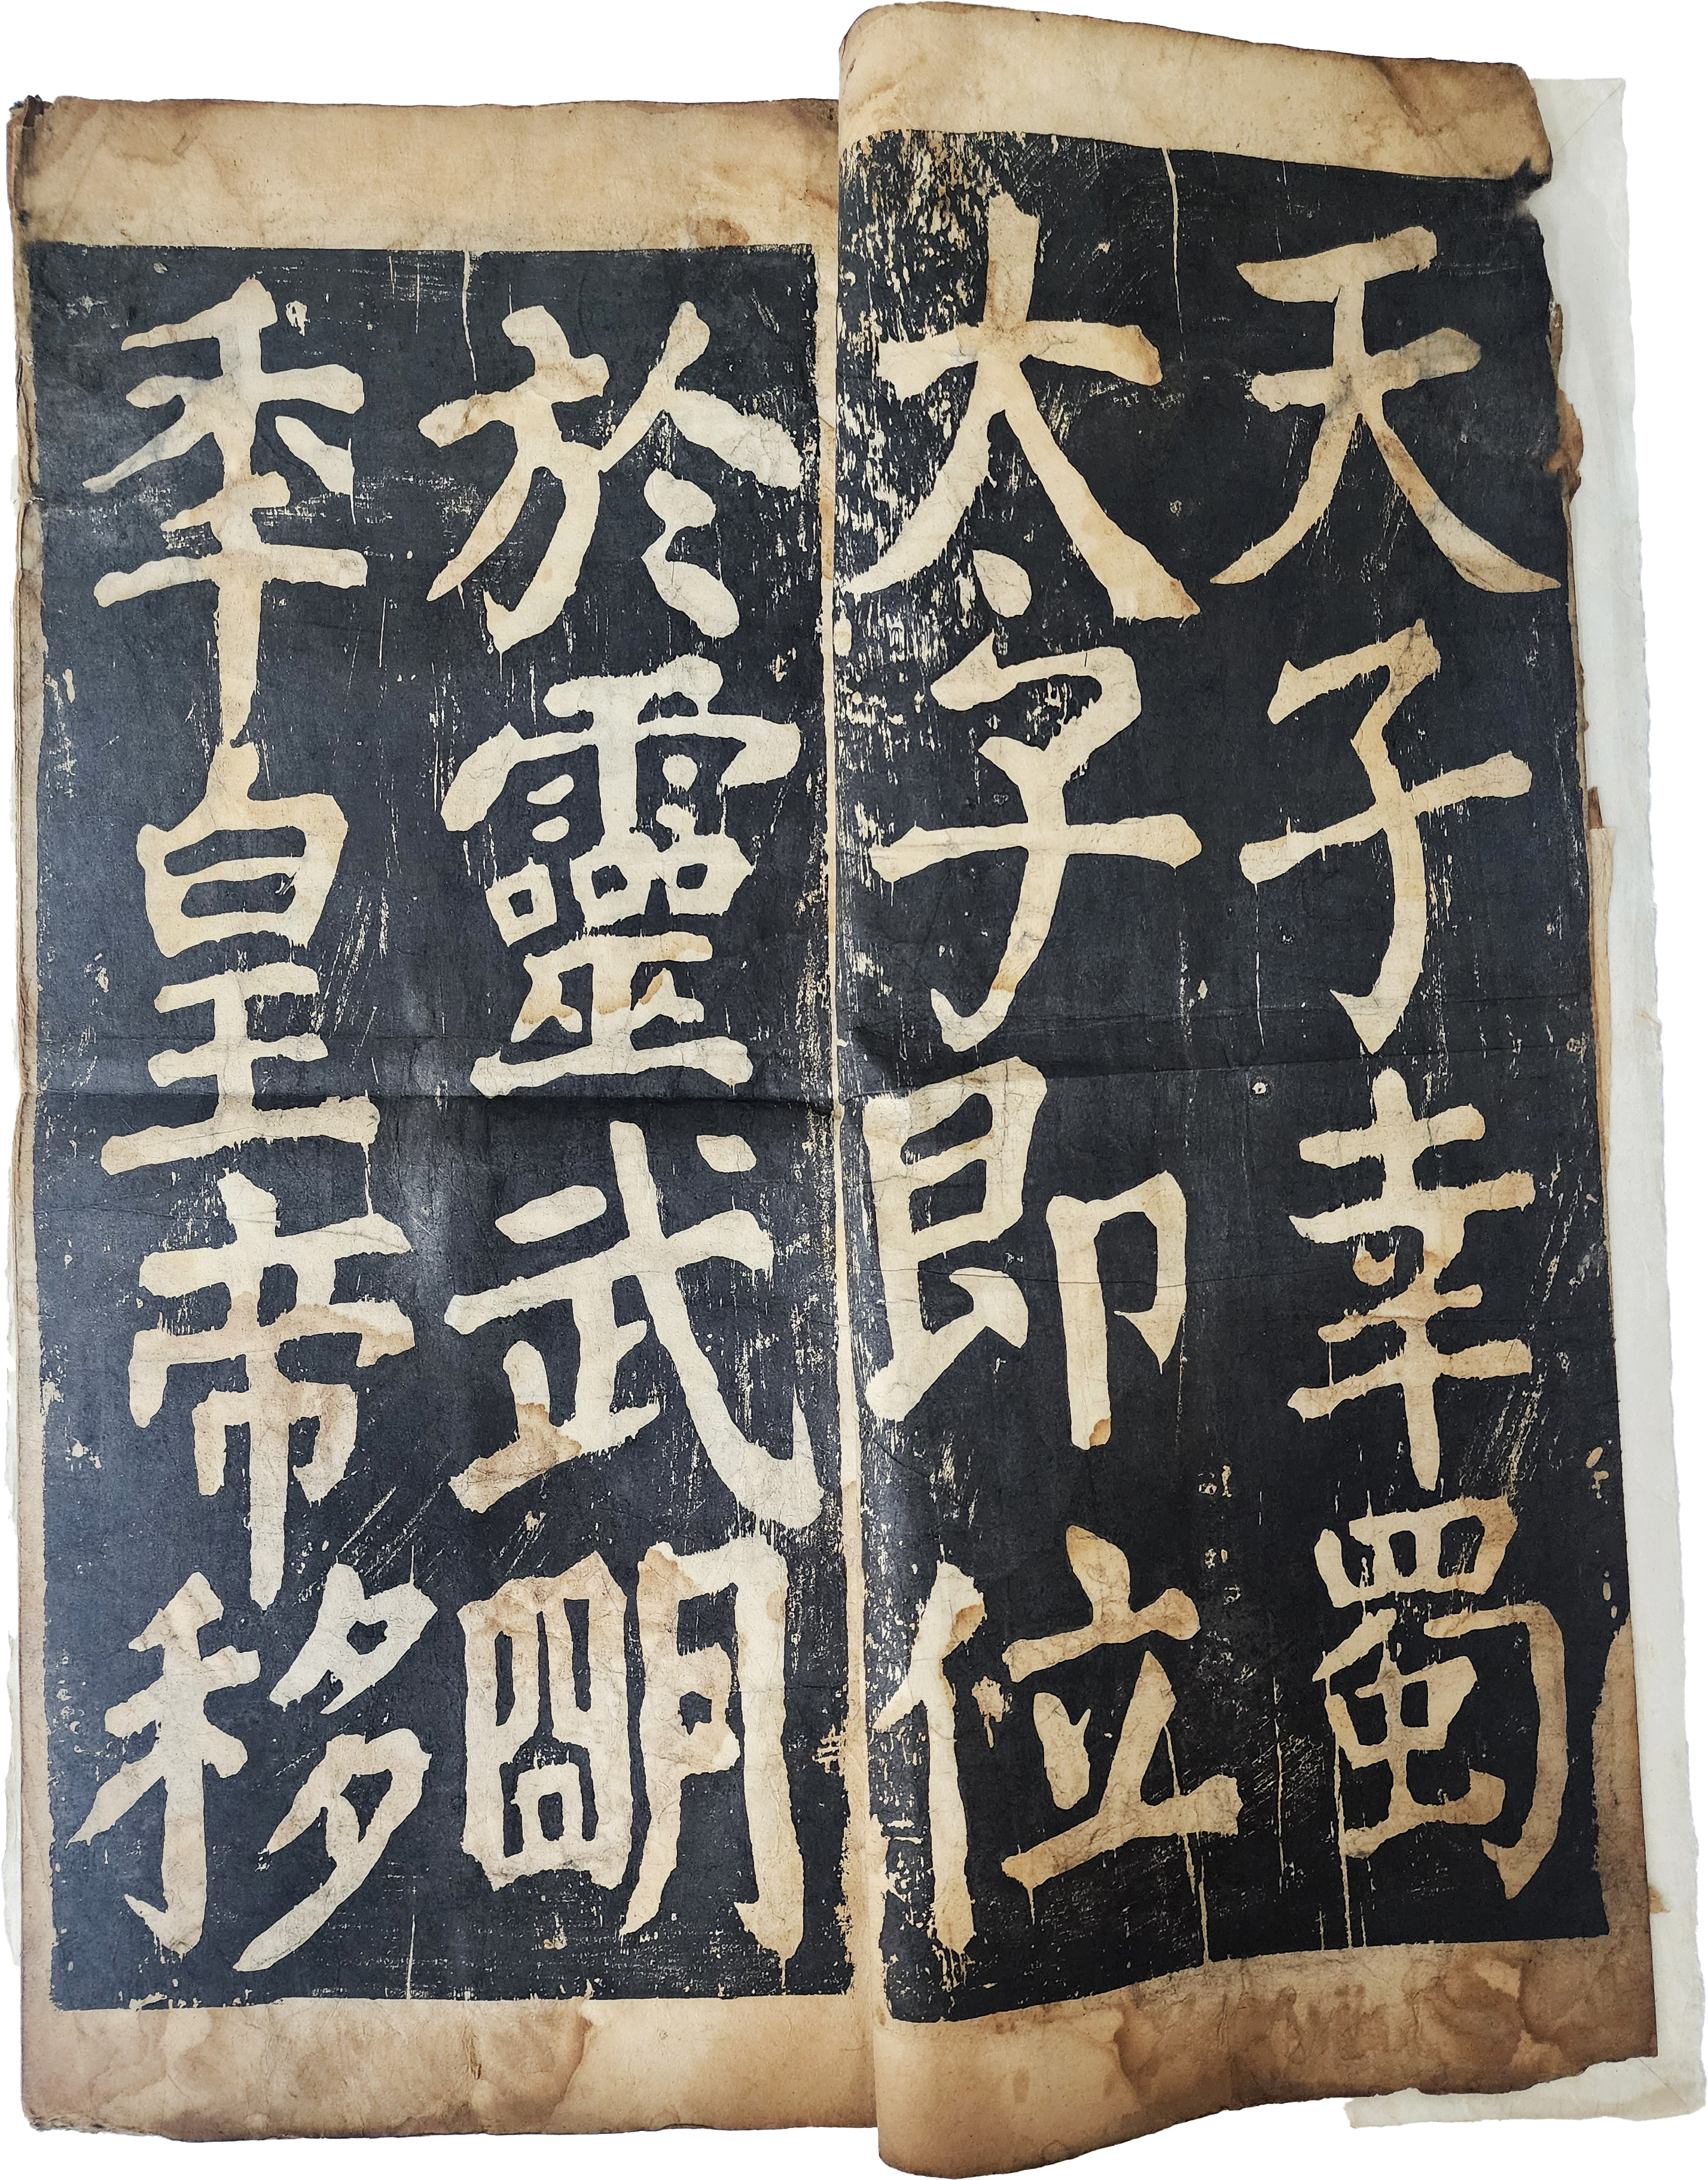 天子幸蜀
太子即位
於靈武明
秊皇帝移